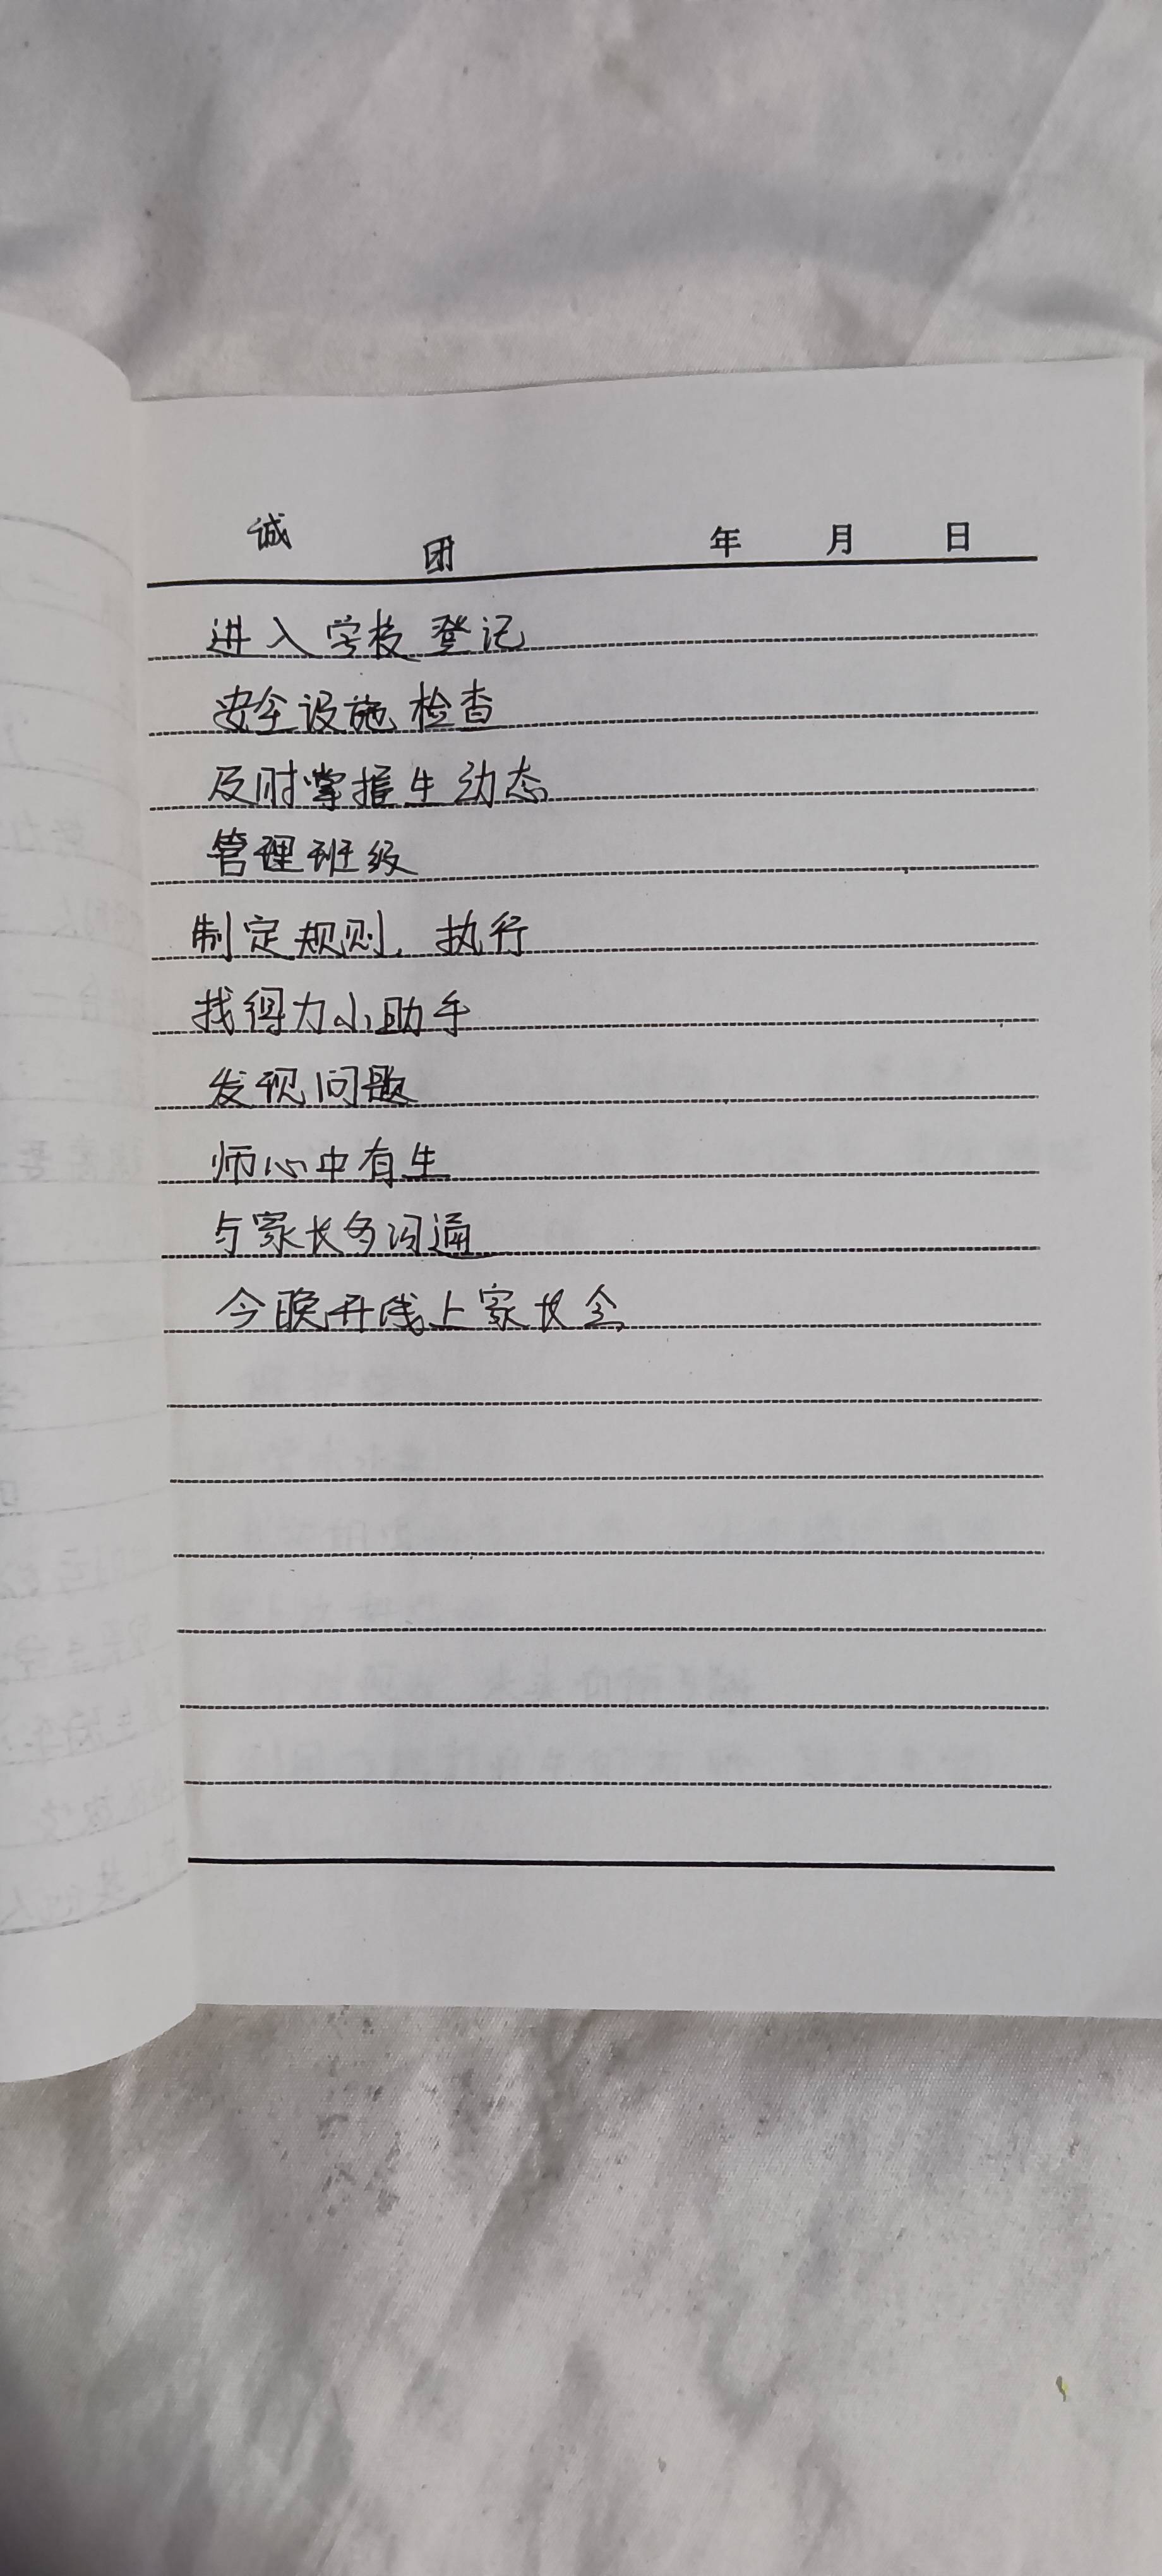 诚 团 年 月 日
进入学校登记
安全设施检查
及时掌握生动态
管理班级
制定规则、执行
找得力小助手
发现问题
师心中有生
与家长多沟通
今晚开线上家长会